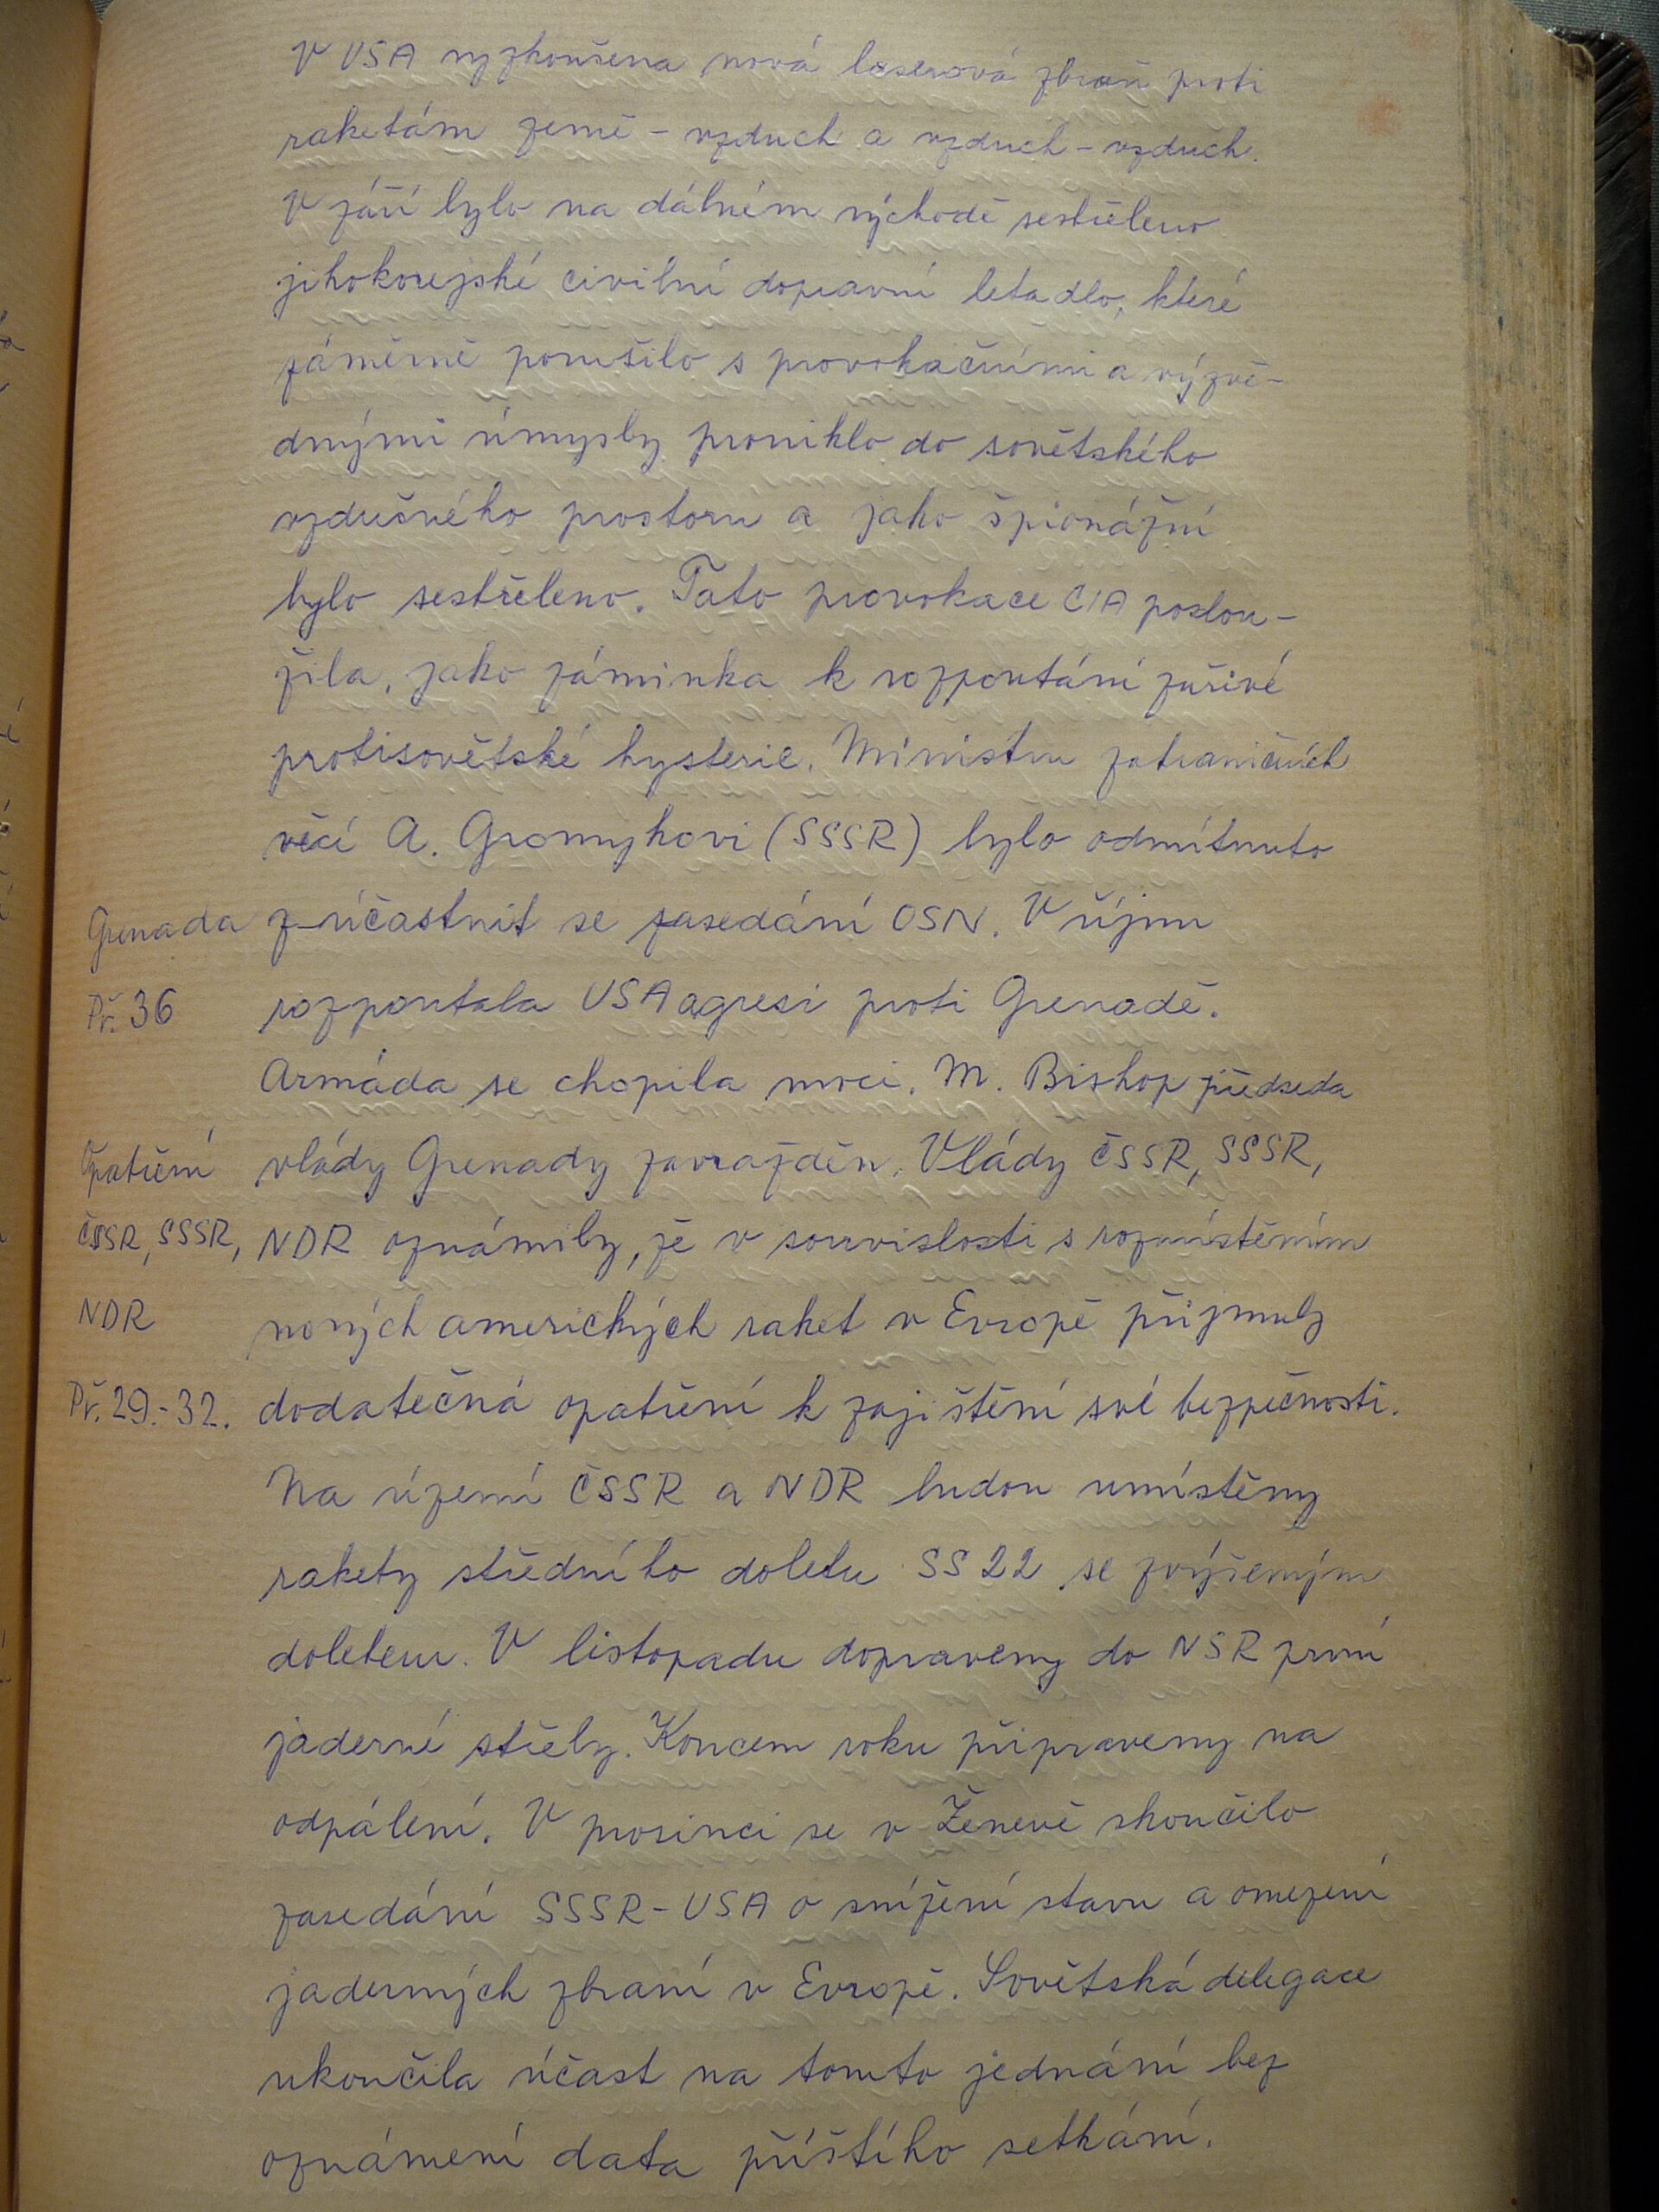 V USA vyzkoušena nová laserová zbraň proti
raketám země - vzduch a vzduch - vzduch.
V září bylo na dálném východě sestřeleno
jihokorejské civilní dopravní letadlo, které
záměrně porušilo s provokačními a výzvě-
dnými úmysly proniklo do sovětského
vzdušného prostoru a jako špionážní
bylo sestřeleno. Tato provokace CIA poslou-
žila, jako záminka k rozpoutání zuřivé
protisovětské hysterie. Ministru zahraničních
věcí A. Gromykovi (SSSR) bylo odmítnuto
Grenada z-účastnit se zasedání OSN. V říjnu
Př. 36 rozpoutala USA agresi proti Grenadě.
Armáda se chopila moci. M. Bishop předseda
Opatření vlády Grenady zavražděn. Vlády ČSSR, SSSR,
ČSSR, SSSR, NDR oznámily, že v souvislosti s rozmístěním
NDR nových amerických raket v Evropě přijmuly
Př. 29.-32. dodatečná opatření k zajištění své bezpečnosti.
Na území ČSSR a NDR budou umístěny
rakety středního doletu SS 22 se zvýšeným
doletem. V listopadu dopraveny do NSR první
jaderné střely. Koncem roku připraveny na
odpálení. V prosinci se v Ženevě skončilo
zasedání SSSR-USA o snížení stavu a omezení
jaderných zbraní v Evropě. Sovětská delegace
ukončila účast na tomto jednání bez
oznámení data příštího setkání.